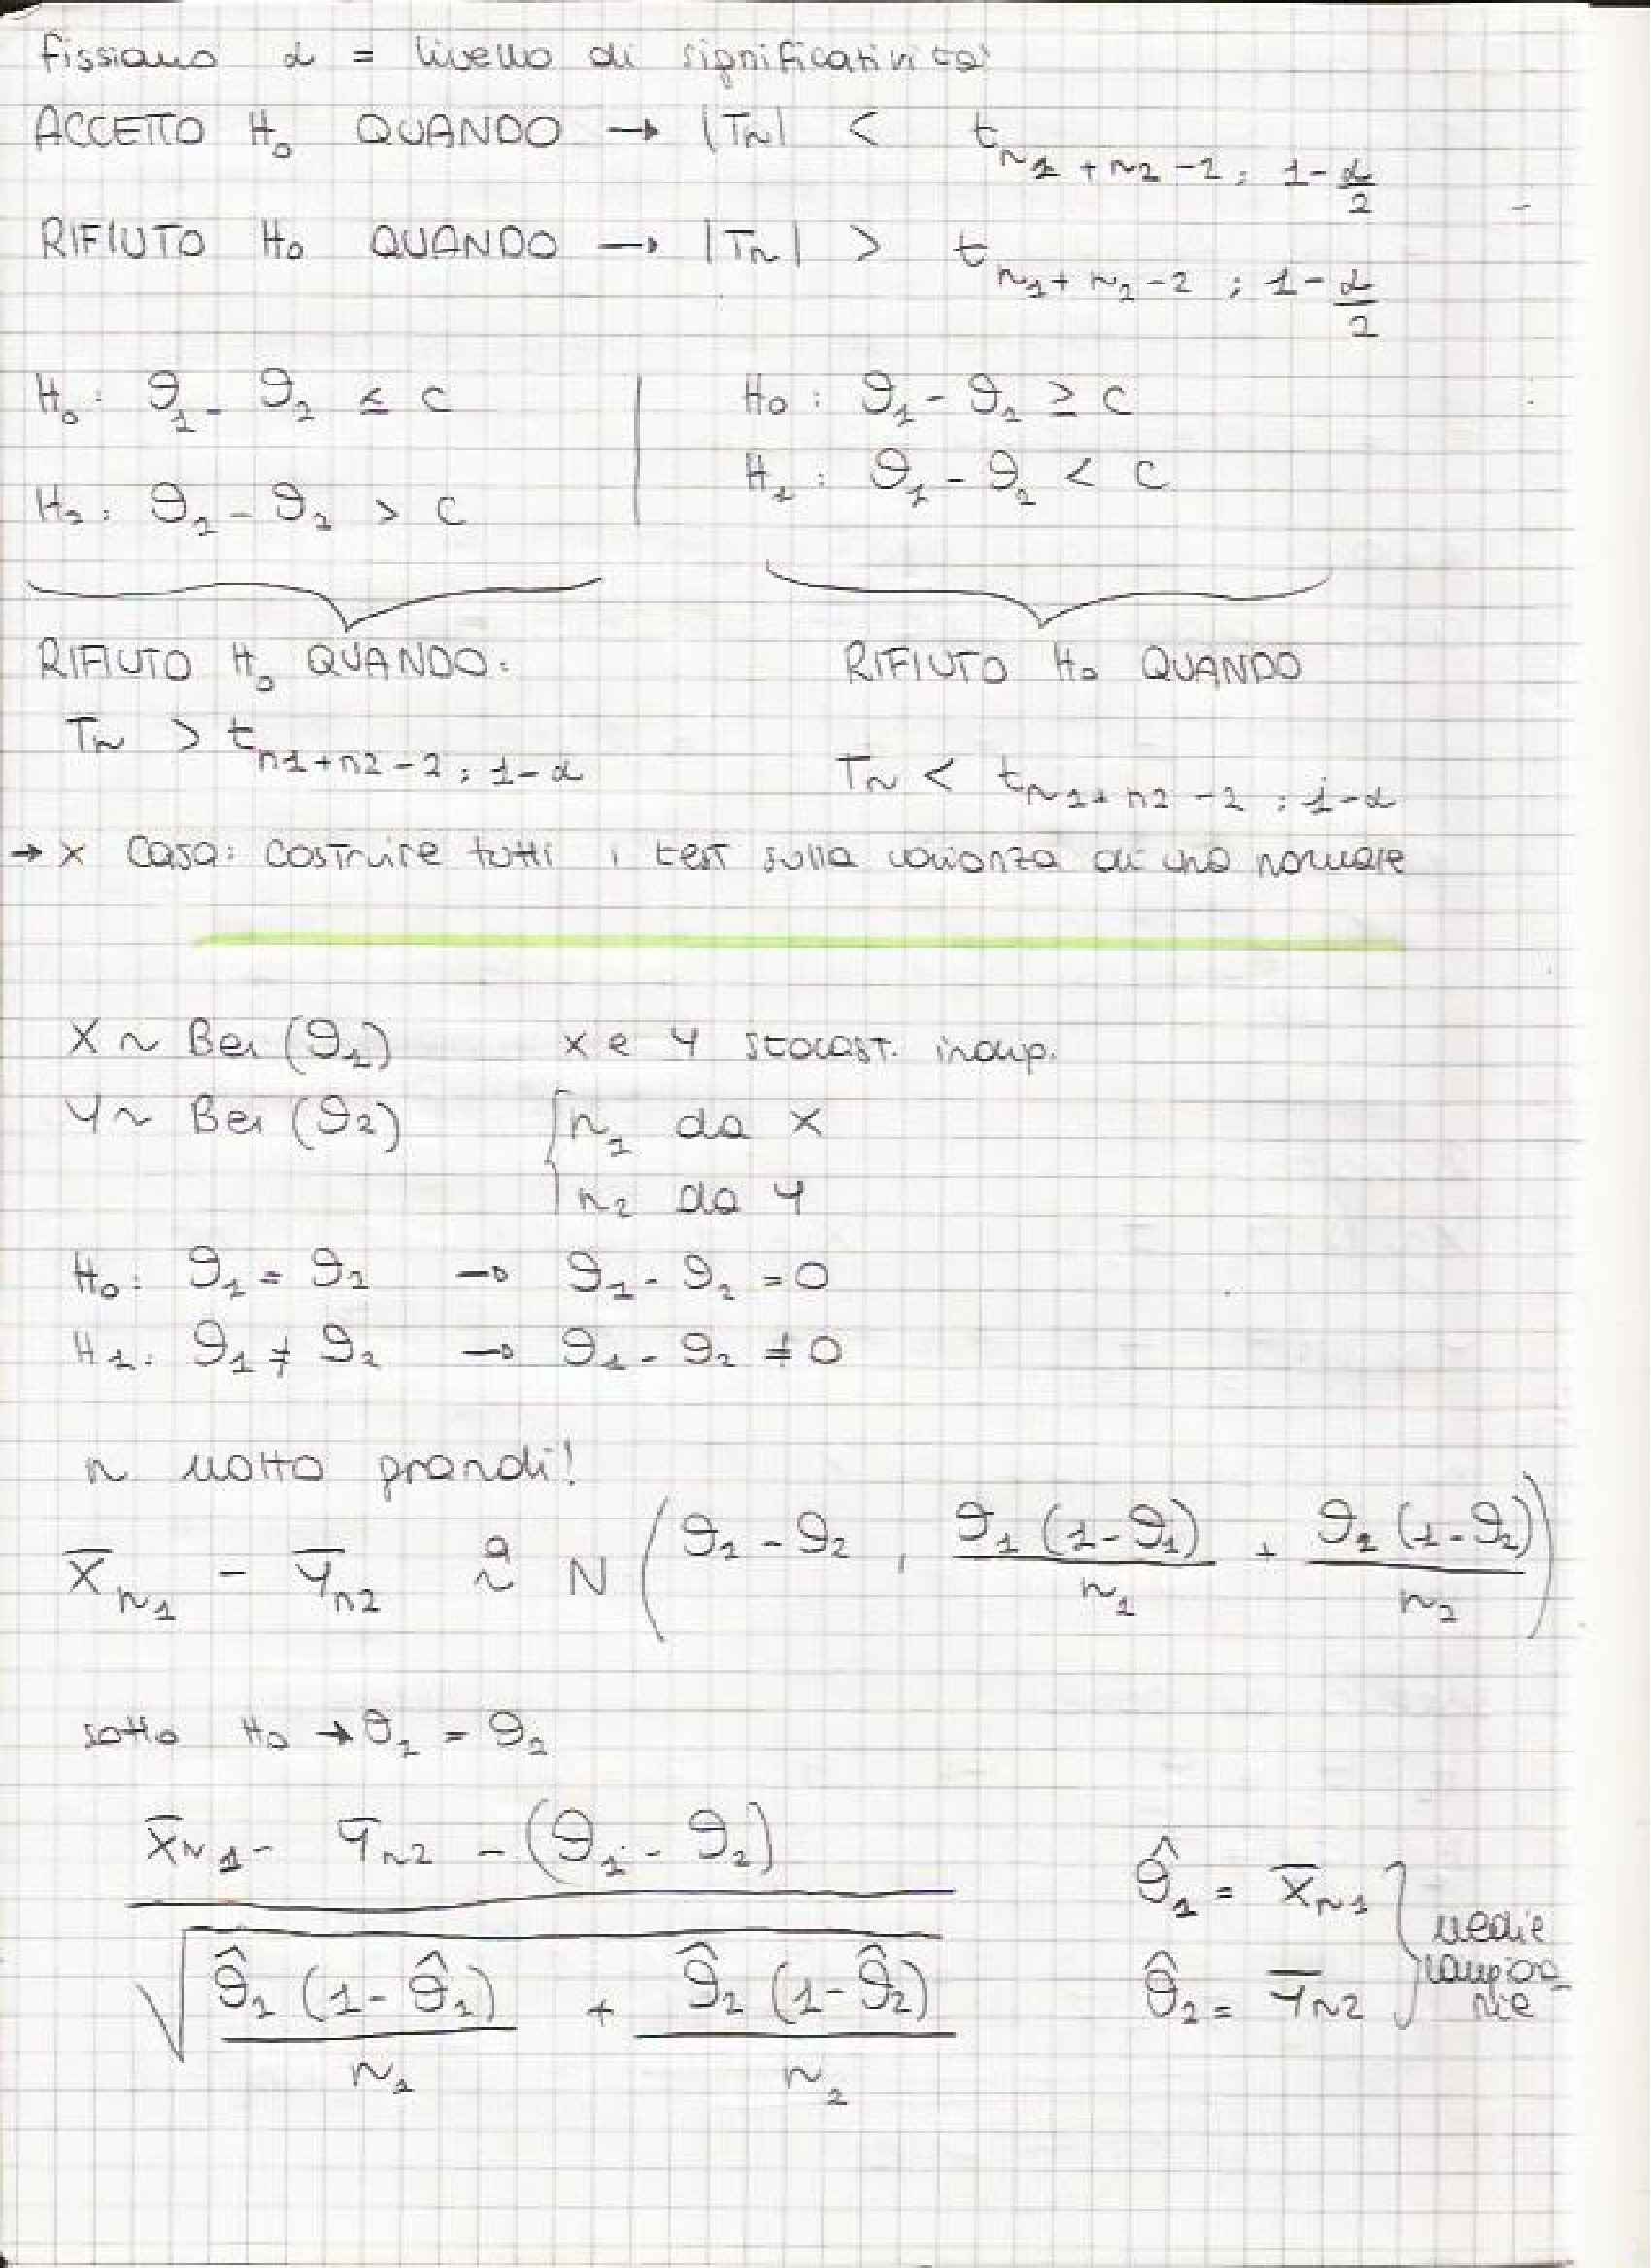 Fissiamo α = livello di significatività
ACCETTO H₀ QUANDO → |Tn| < t n₁ + n₂ - 2 ; 1 - α/2
RIFIUTO H₀ QUANDO → |Tn| > t n₁ + n₂ - 2 ; 1 - α/2
H₀: ϑ₁ - ϑ₂ ≤ c
H₁: ϑ₁ - ϑ₂ > c
H₀: ϑ₁ - ϑ₂ ≥ c
H₁: ϑ₁ - ϑ₂ < c
RIFIUTO H₀ QUANDO:
Tn > t n1 + n2 - 2 ; 1 - α
RIFIUTO H₀ QUANDO
Tn < t n1 + n2 - 2 ; 1 - α
→ x casa: costruire tutti i test sulla varianza di una normale
X ~ Ber (ϑ₁) x e Y stocast. indip.
Y ~ Ber (ϑ₂) { n₁ da X
n₂ da Y
H₀: ϑ₁ = ϑ₂ → ϑ₁ - ϑ₂ = 0
H₁: ϑ₁ ≠ ϑ₂ → ϑ₁ - ϑ₂ ≠ 0
n molto grandi!
X̄n₁ - Ȳn₂ ᵃ~ N ( ϑ₁ - ϑ₂ , ϑ₁ (1-ϑ₁) / n₁ + ϑ₂ (1-ϑ₂) / n₂ )
sotto H₀ → ϑ₁ = ϑ₂
X̄n₁ - Ȳn₂ - (ϑ₁ - ϑ₂)
√ ϑ̂₁ (1-ϑ̂₁) / n₁ + ϑ̂₂ (1-ϑ̂₂) / n₂
ϑ̂₁ = X̄n₁
ϑ̂₂ = Ȳn₂
} medie
campiona-
rie